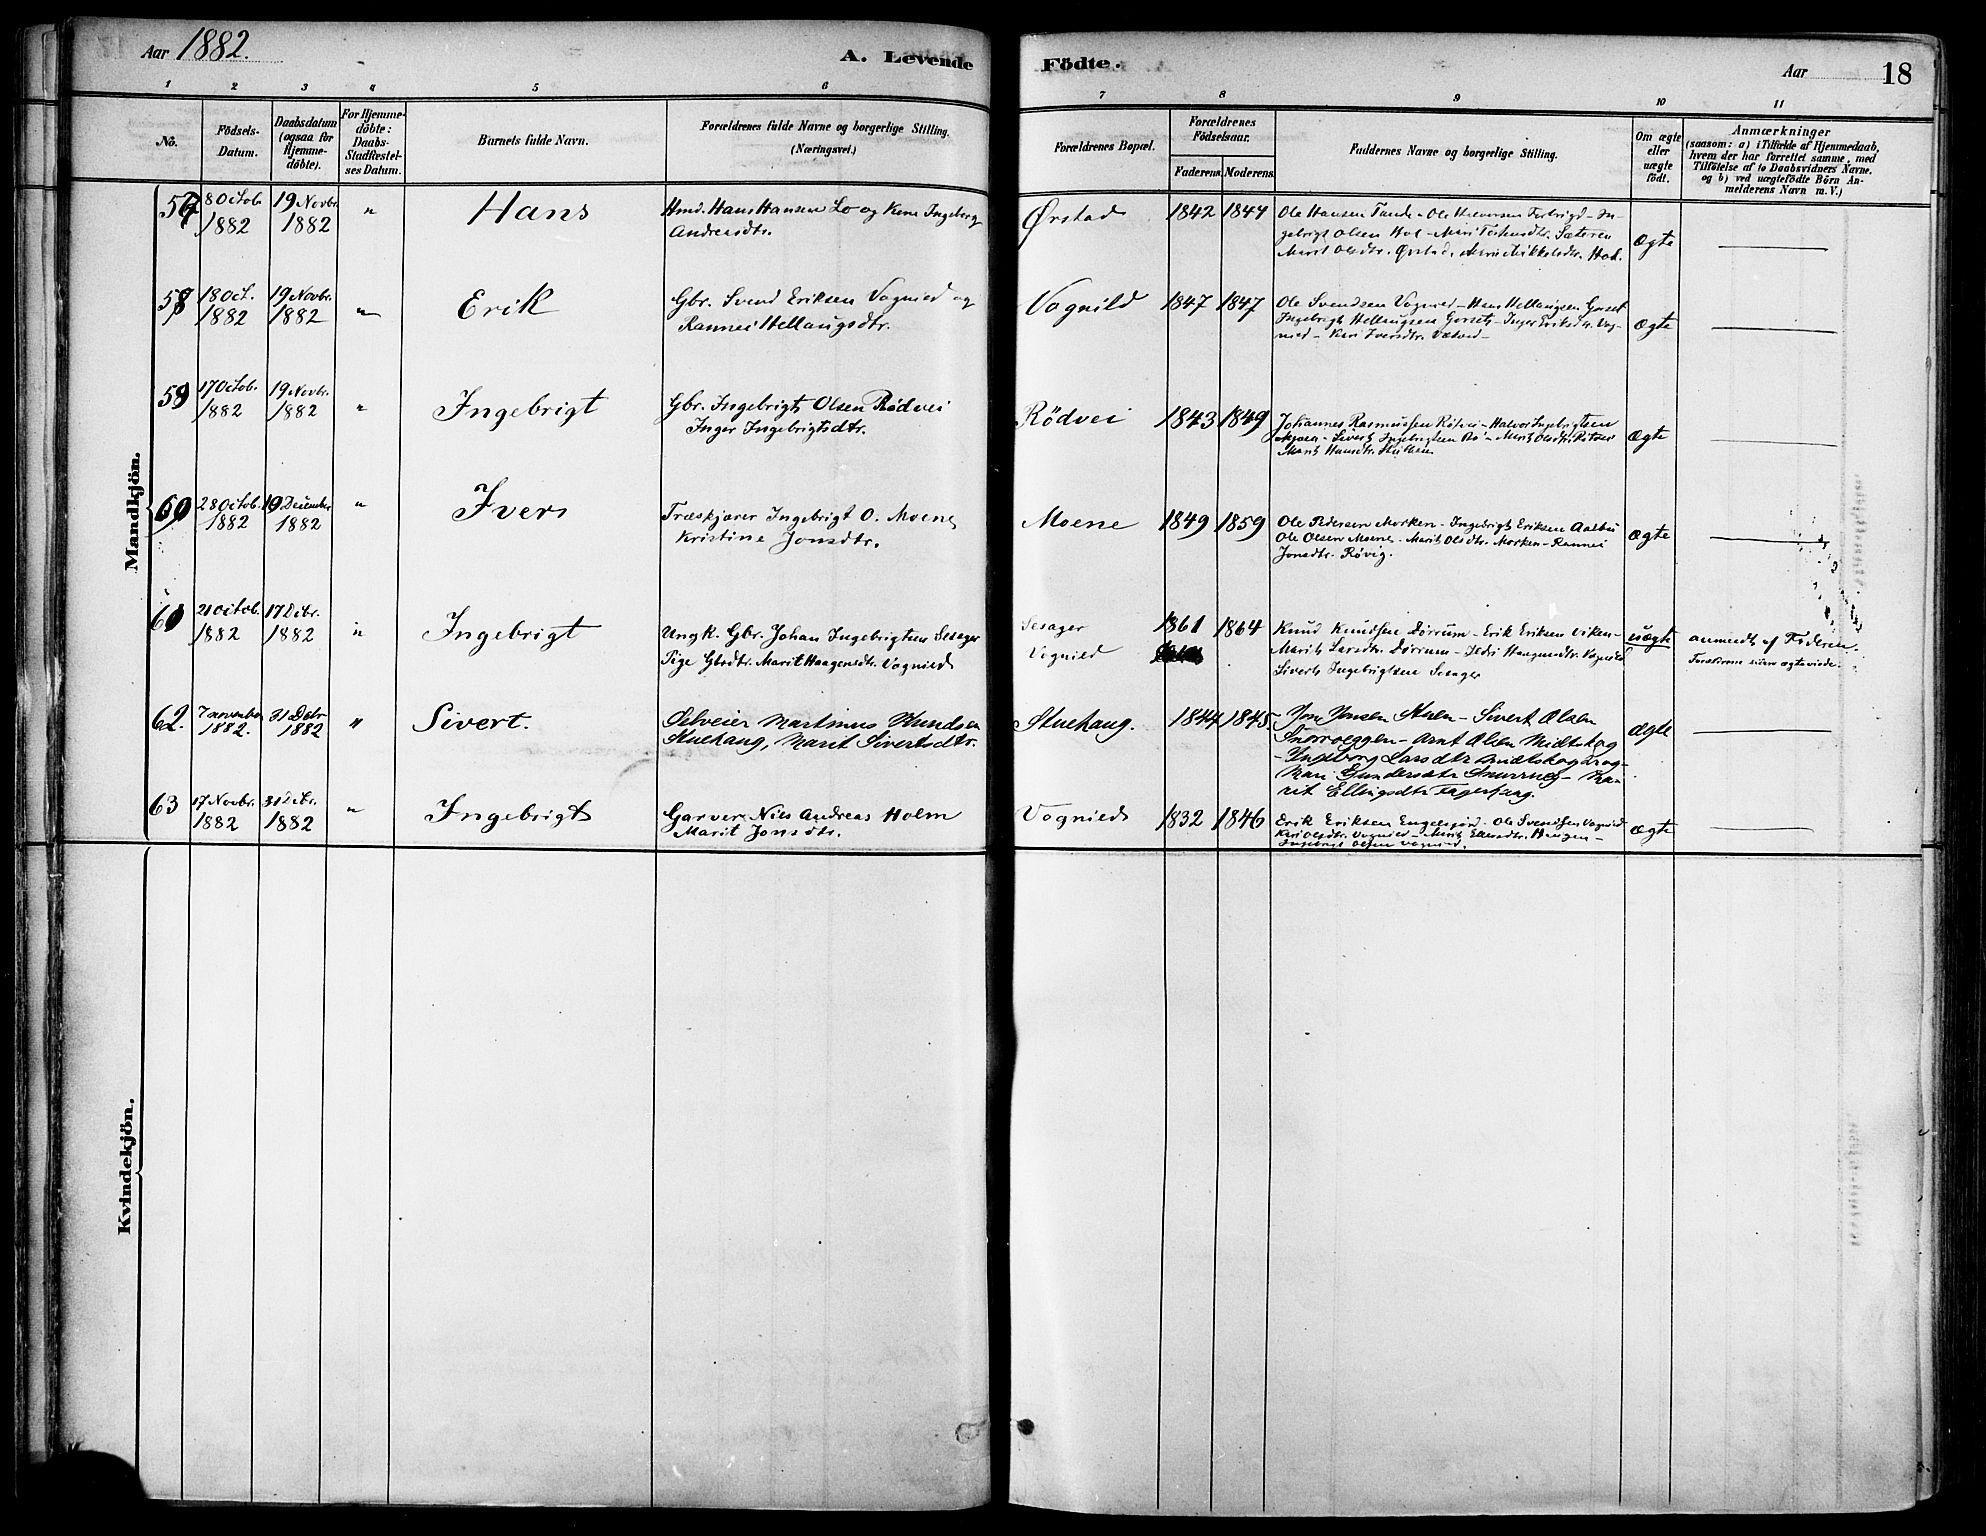 Aar 1882.
A. Levende
Födte.
Aar
18
1 2 3 4 5 6
7 8 9 10 11
No.
Födsels-
Datum.
Daabsdatum
(ogsaa for
Hjemme-
döbte).
For Hjemme-
döbte:
Daabs-
Stadfæstel-
ses Datum.
Barnets fulde Navn.
Forældrenes fulde Navne og borgerlige Stilling.
(Næringsvei.)
Forældrenes Bopæl.
Forældrenes
Födselsaar.
Faderens. Moderens.
Faddernes Navne og borgerlige Stilling.
Om ægte
eller
uægte
födt.
Anmærkninger
(saasom: a) i Tilfælde af Hjemmedaab,
hvem der har forrettet samme, med
Tilföielse af to Daabsvidners Navne,
og b) ved uægtefödte Börn An-
melderens Navn m. V.)
Mandkjön.
57 8 Octob. 1882 19 Novbr. 1882 " Hans
Hmd. Hans Hansen Lo og Kone Ingeborg
Andreasdtr.
Ørstad 1842 1847
Ole Hansen Tande - Ole Halvorsen - In-
gebrigt Olsen Hol - Mari Sæteren
Marit Olsdtr. Ørstad, Mari Mikkelsdtr. Hol.
ægte
58 18 Oct. 1882 19 Novbr. 1882 " Erik
Gbr. Svend Eriksen Vognild og
Rannei Hellaugsdtr.
Vognild 1847 1847
Ole Svendsen Vognild - Hans Hellaugsen Gorset
Ingebrigt Hellaugsen Gorset - Inger Eriksdtr. Vog-
nild - Kari Iversdtr.
ægte
59 17 Octob. 1882 19 Novbr. 1882 " Ingebrigt
Gbr. Ingebrigt Olsen Rødvei
Inger Ingebrigtsdtr.
Rödvei 1843 1849
Johannes Rasmussen Rötvei - Halvor Ingebrigtsen
- Sivert Ingebrigtsen - Marit Olsdtr. Rötvei
Marit Hansdtr.
ægte
60 28 Octob. 1882 19 December 1882 " Iver
Træskjærer Ingebrigt O. Moene
Kristine Jonsdtr.
Moene 1849 1859
Ole Pedersen Morken - Ingebrigt Eriksen Aalbu
Ole Olsen Moene - Marit Olsdtr. Morken - Rannei
Jonsdtr. Røvig.
ægte
61 21 Octob. 1882 17 Dcbr. 1882 " Ingebrigt
Ungk. Gbr. Johan Ingebrigtsen Sesager
Pige Gbrdtr. Marit Haagensdtr. Vognild
Sesager 1861 1864
Vognild
Knud Knudsen Dørrum - Erik Eriksen Viken -
Marit Larsdtr. Dørrum - Haagensdtr. Vognild
Sivert Ingebrigtsen Sesager
uægte
anmeldt af Faderen.
62. 7 november 1882. 31 Dcbr 1882 " Sivert.
Selveier Martinus Knudsen
Stuehaug, Marit Sivertsdtr.
Stuehaug. 1844 1845.
Jon Jonsen Stuen - Sivert Olsen
Snøveggen - Arnt Olsen Midtskog
- Ingeborg Larsdtr Midtskog og -
Mari Gundersdtr - Ma-
rit Ellingsdtr Fagerhaug.
ægte
63 17 Novbr. 1882 31 Dcbr. 1882 " Ingebrigt
Garver Nils Andreas Holm
Marit Jonsdtr.
Vognild 1832 1846
Erik Eriksen Engelsgjerd - Ole Svendsen Vognild
Kari Olsdtr. Vognild - Marit Haugen -
Ingebrigt Olsen Vognild.
ægte
Kvindekjön.